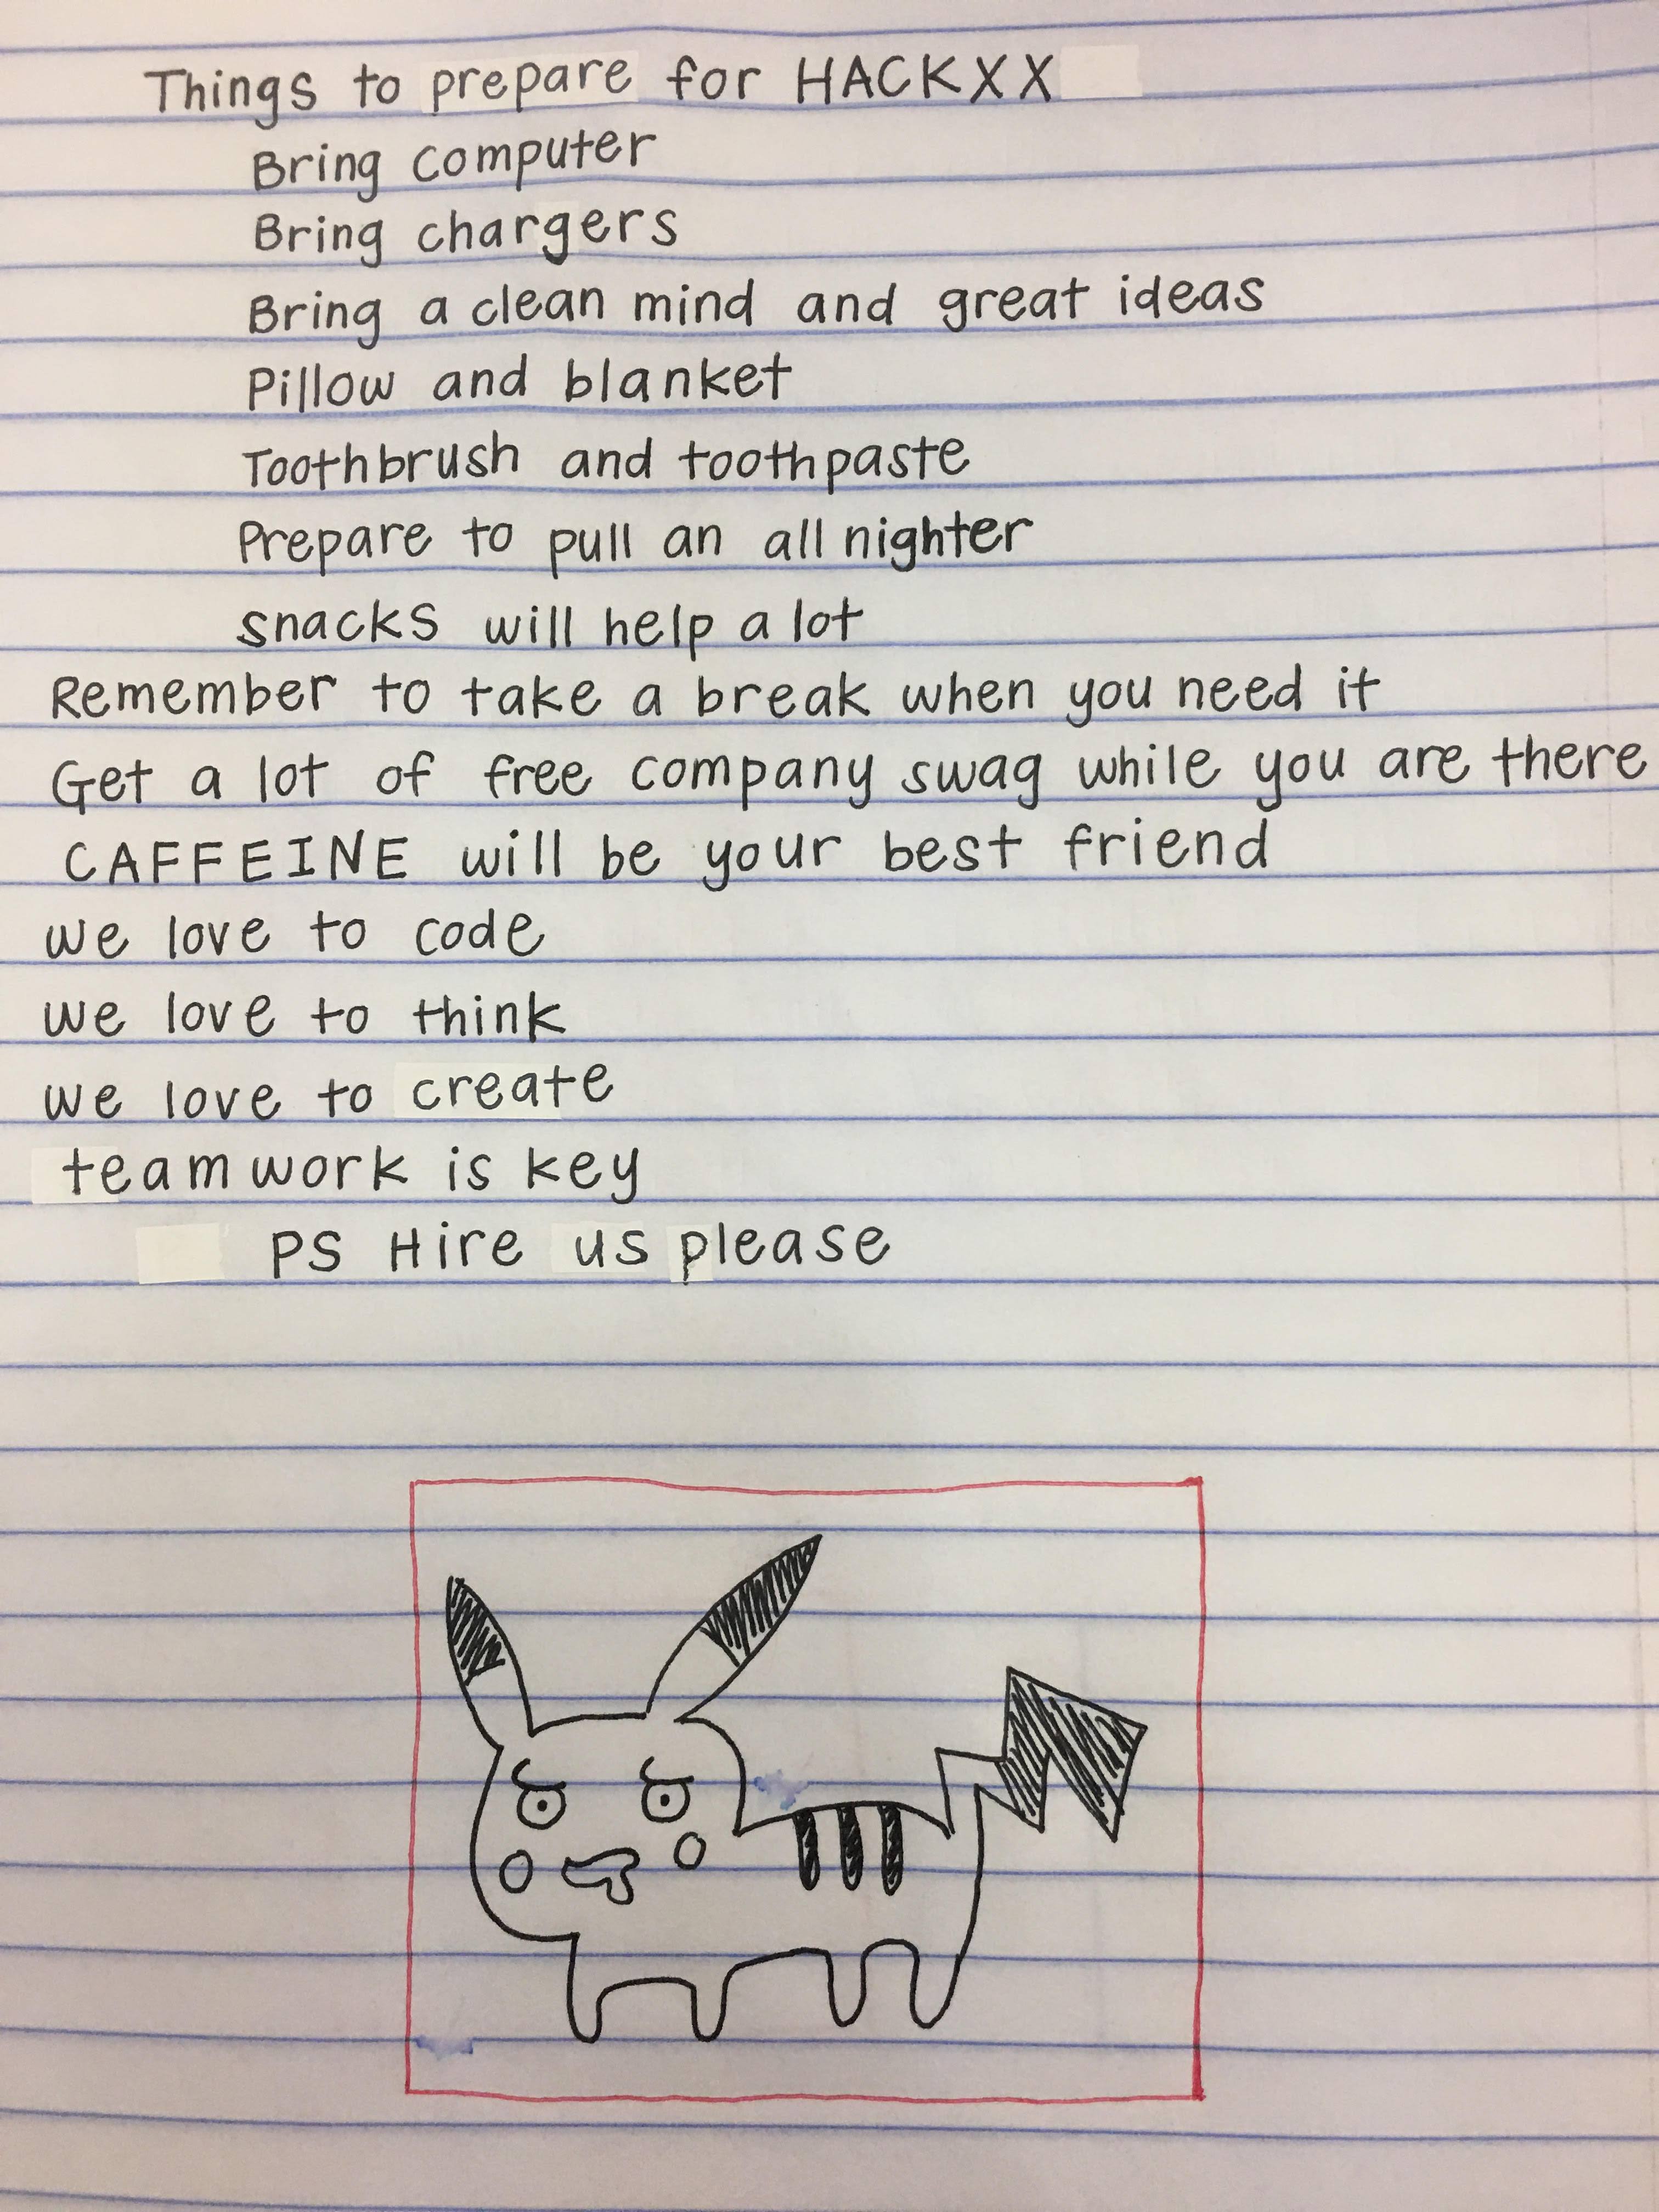 Things to prepare for HACKXX
Bring computer
Bring chargers
Bring a clean mind and great ideas
Pillow and blanket
Toothbrush and toothpaste
Prepare to pull an all nighter
snacks will help a lot
Remember to take a break when you need it
Get a lot of free company swag while you are there
CAFFEINE will be your best friend
we love to code
we love to think
we love to create
teamwork is key
PS Hire us please